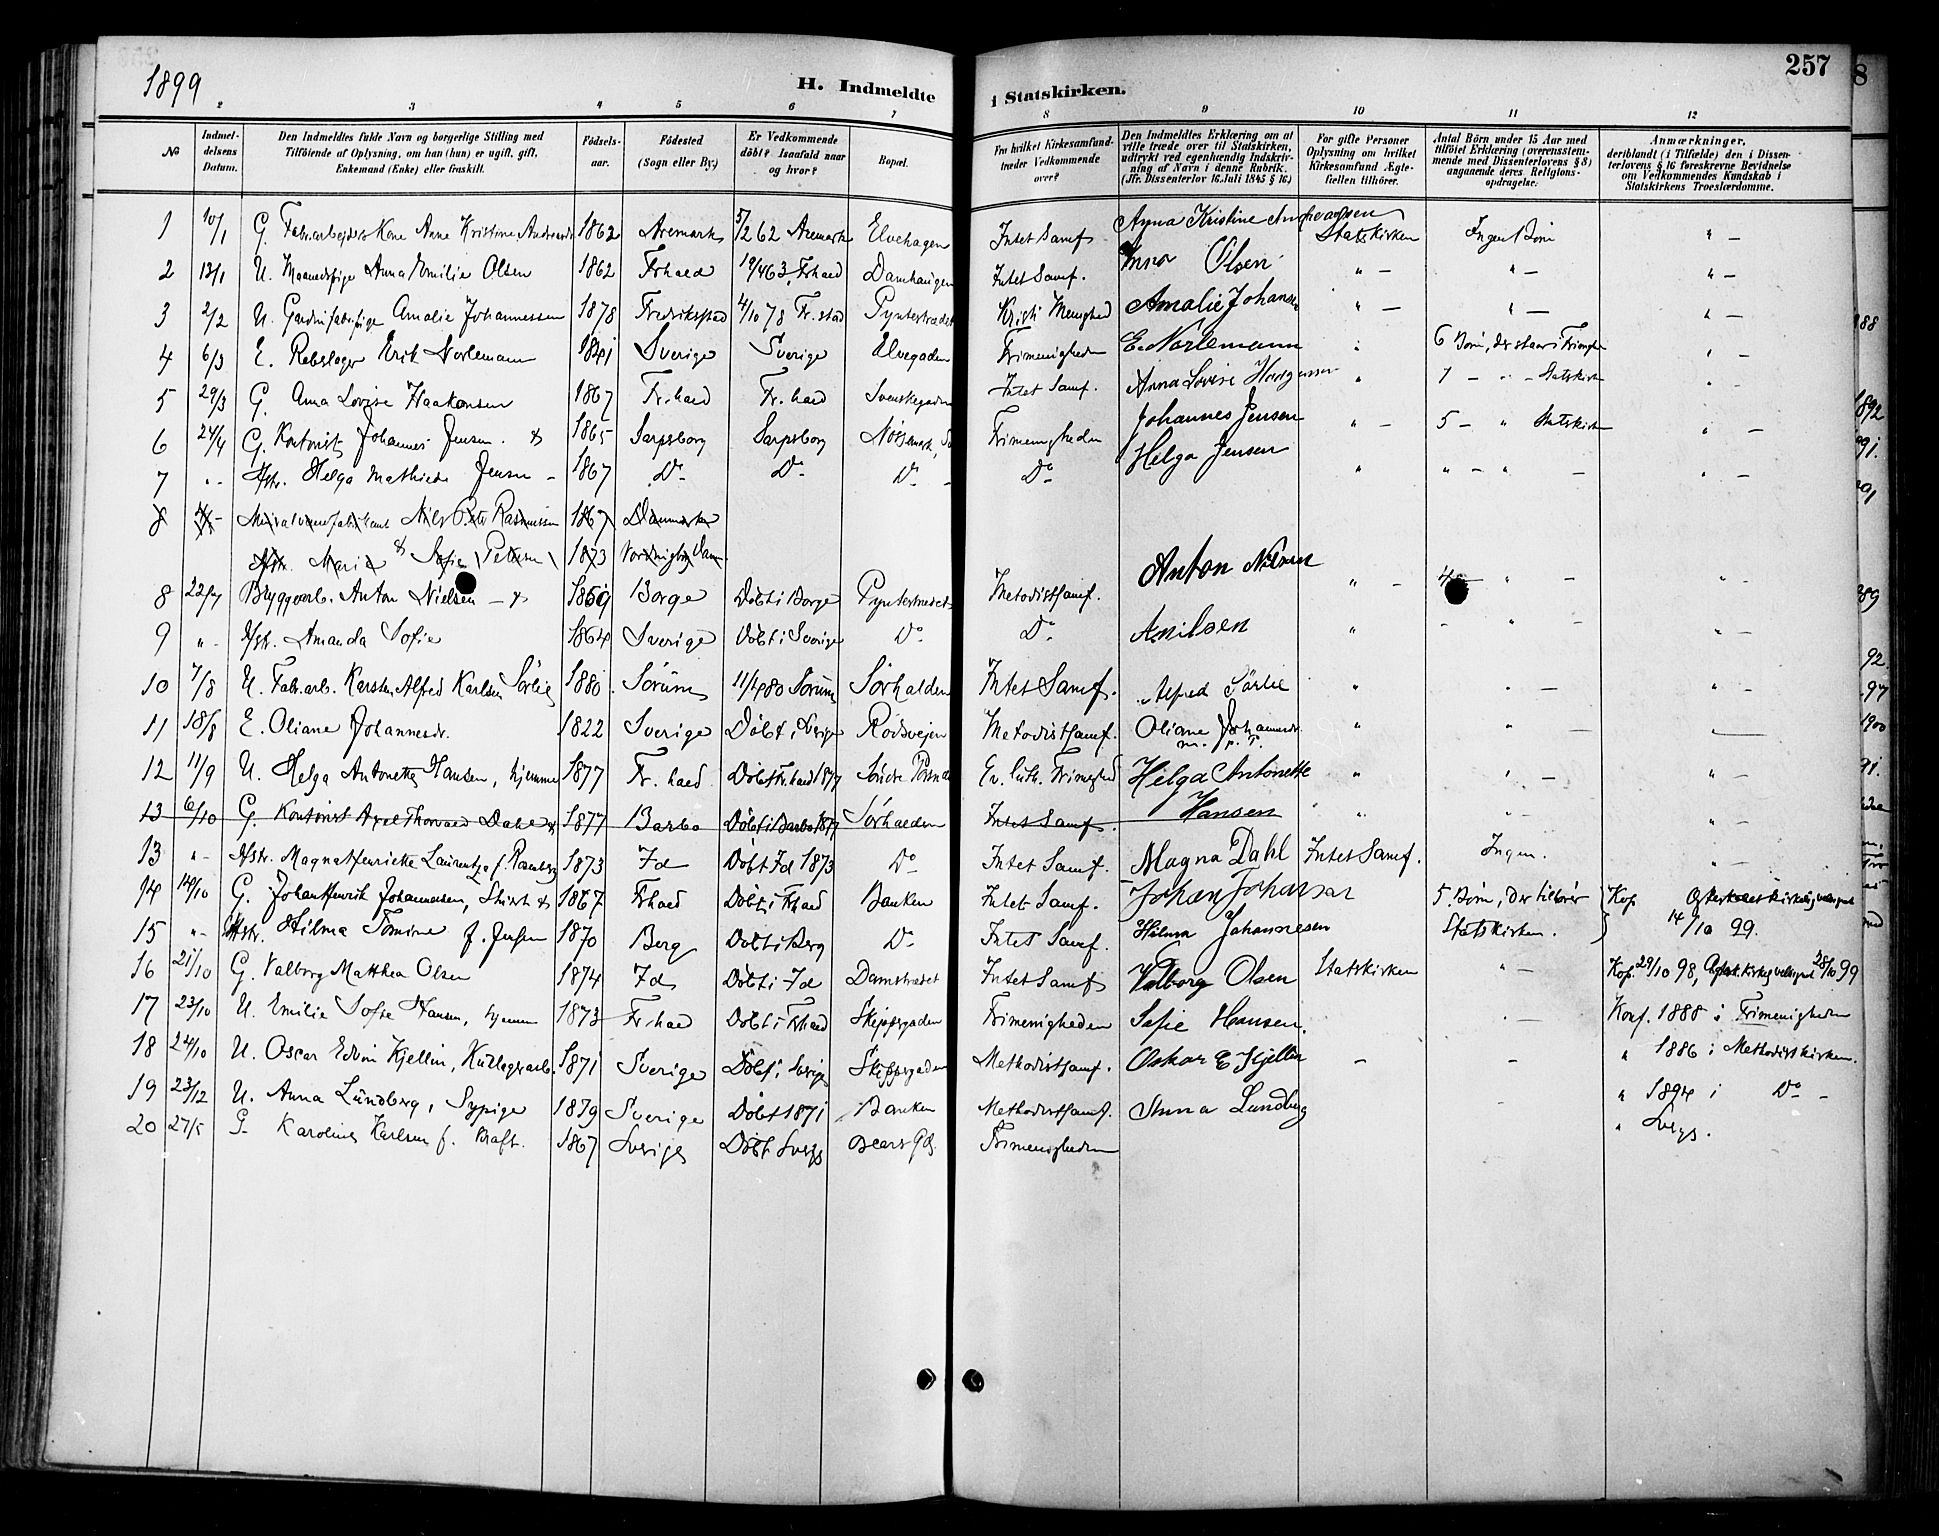 257
1899
H. Indmeldte i Statskirken.
2 3 4 5 6 7 8 9 10 11 12
No
Indmeldelsens Datum.
Den Indmeldtes fulde Navn og borgerlige Stilling med Tilföiende af Oplysning, om han (hun) er ugift, gift, Enkemand (Enke) eller fraskilt.
Födselsaar.
Födested (Sogn eller By.)
Er Vedkommende döbt? Isaafald naar og hvor?
Bopæl.
Fra hvilket Kirkesamfund træder Vedkommende over?
Den Indmeldtes Erklæring om at ville træde over til Statskirken, udtrykt ved egenhændig Indskrivning af Navn i denne Rubrik. (Jfr. Dissenterlov 16. Juli 1845 § 16)
For gifte Personer Oplysning om hvilket Kirkesamfund Ægtefællen tilhörer.
Antal Börn under 15 Aar med tilföiet Erklæring (overensstemmende med Dissenterlovens § 8) angaaende deres Religionsopdragelse.
Anmærkninger, deriblandt (i Tilfælde) den i Dissenterlovens § 16 foreskrevne Bevidnelse om Vedkommendes Kundskab i Statskirkens Troeslærdomme.
1 10/1 G. Fabr.arbejders Kone Anne Kristine Andreasdr 1862 Aremark 5/2 62 Aremark Elvehagen Intet Samf. Anna Kristine Andreassen Statskirken Ingen Börn " —
2 13/1 U. Anna Emilie Olsen 1862 Frhald 19/4 63, Frhald Damhaugen Intet Samf. Anna Olsen " — " — " —
3 2/2 U. Amalie Johannessen 1878 Fredrikstad 4/10 78 Fr.stad Pynterstrædet Kristi Menighed Amalie Johansen " — " — " —
4 6/3 E. Rebslager Erik Norlemann 1841 Sverige Sverige Elvegaden Frimenigheden E. Norlemann " 6 Börn, der staar i Frimgh " —
5 29/3 G. Anna Lovise Haakonsen 1867 Fr.hald Fr.hald Svenskegaden Intet Samf. Anna Lovise " 1 — " — Statskirken " —
6 24/4 G. Kontorist Johannes Jensen & 1865 Sarpsborg Sarpsborg Frimenigheden Johannes Jensen " — 5 — " Statskirken " —
7 " - Hstr. Helga Mathilde Jensen — 1867 Do Do Do — Do Helga Jensen " " — " — " —
8 Mineralvandfabrikant Nils Peter Rasmussen 1867 Danmark
& Hstr. Marie Sofie Petersen 1873 Vordingborg Danm.
8 22/7 Bryggearb. Anton Nielsen — & 1869 Borge Döbt i Borge Pynterstrædet Metodistsamf. Anton Nilsen " — 4 — " — " —
9 " - Hstr. Amanda Sofie 1864 Sverige Döbt i Sverige Do Do A. Nilsen " - " - " —
10 7/8 U. Fabr.arb. Karsten Alfred Karlsen Sörlie 1880 Sörum 11/4 80 Sörum Sörhalden Intet Samf. Alfred Sörlie " " — " —
11 18/8 E. Oliane Johannesdr. 1822 Sverige Döbt i Sverige Rödsvejen Metodistsamf. Oliane Johannesdr. m. p. P. " " — " —
12 11/9 U. Helga Antonette Hansen, hjemme 1877 Fr.hald Döbt Fr.hald 1877 Söndre Ev. luth. Frimeghed Helga Antonette Hansen " " — " —
13 6/10 G. Kontorist Axel Thorvald Dahl & 1877 Barbo Döbt i Barbo 1877 Sörhalden Intet Samf. " " - " —
13 " - Hstr. Magna Henriette Laurentze f. Ramberg 1873 Id Döbt Id 1873 Do Intet Samf. Magna Dahl Intet Samf. Ingen. " —
14 14/10 G. Johan Henrik Johannesen, & 1867 Frhald Döbt i Frhald Banken Intet Samf. Johan Johansen 5 Börn, der tilhörer Kop.
15 " - Hstr. Hilma Tomine f. Jensen 1870 Berg Döbt i Berg Do Intet Samf. Hilma Johannesen Statskirken. 14/10 99.
16 21/10 G. Valborg Matthea Olsen 1874 Id Döbt i Id Damstrædet Intet Samf Valborg Olsen Statskirken " — Kop. 29/10 98, 28/10 99
17 23/10 U. Emilie Sofie Hansen, hjemme 1873 Fr.hald Döbt i Frhald Skippergaden Frimenigheden Sofie Hansen. " — Konf. 1888 i Frimenigheden
18 24/10 U. Oscar Edvin Kjellin, 1871 Sverige Döbt i Sverige Skippergaden Methodistsamf. Oskar E Kjellin — — " 1886 i Methodistkirken.
19 23/12 U. Anna Lundberg, Sypige 1879 Sverige Döbt 1871 Banken Methodistsamf. Anna Lundberg - - " 1894 i Do -
20 27/5 G. Karoline Karlsen f. 1867 Sverige Döbt Sverge Frimenigheden " Sverge.